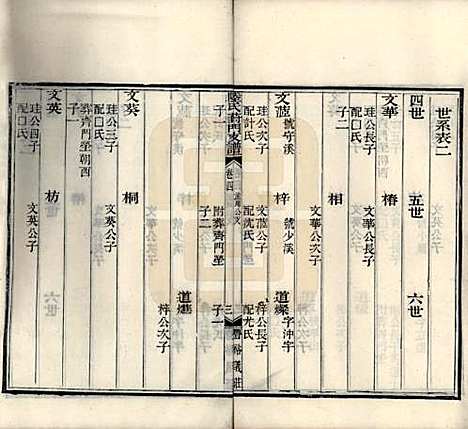 世系表二
四世 五世 六世
文華 珪公長子 配囗氏
椿 文華公長子
相 文華公次子
文蔬 號守溪 珪公次子 配許氏 子二
梓 號少溪 文蔬公子 配沈氏 附葬齊門塋 子二
道燦 字沖宇 梓公長子 配尤氏 子一
道 梓公次子
卷四
三
豐裕義莊
文葵 珪公三子 配囗氏 葬齊門塋朝西 子一
桐 文葵公子
文英 珪公四子 配囗氏
枋 文英公子